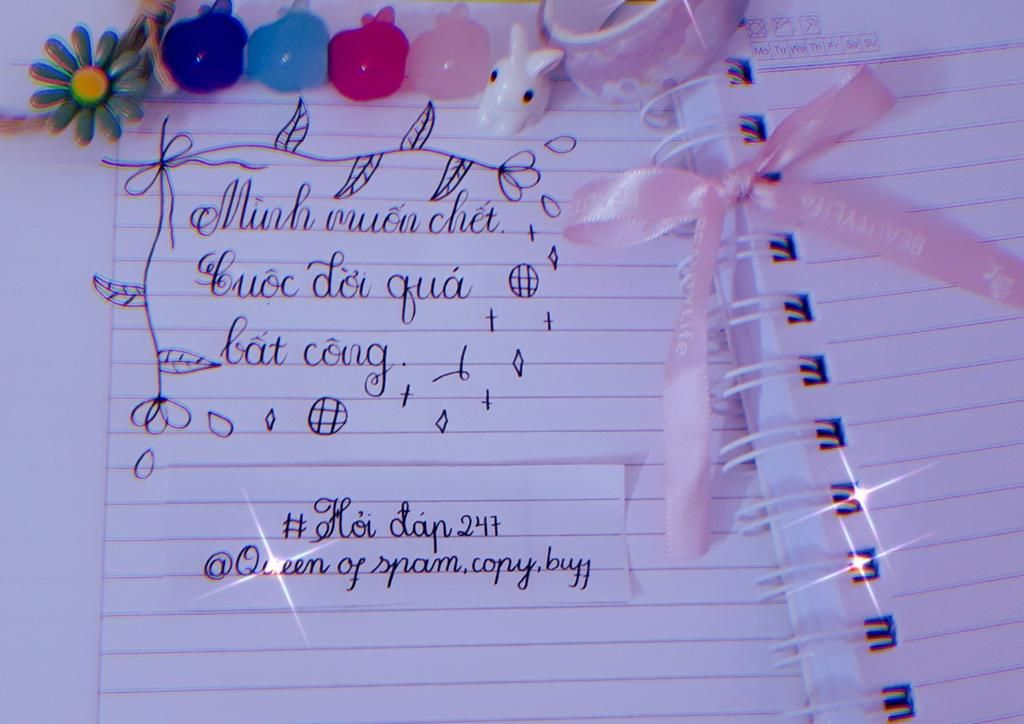 Mo Tu We Th Fr Sa Su
Mình muốn chết.
Cuộc đời quá
bất công.
BEAUTYLife
BEAUTYLife
#Hỏi đáp 247
@Queen of spam,copy,buff